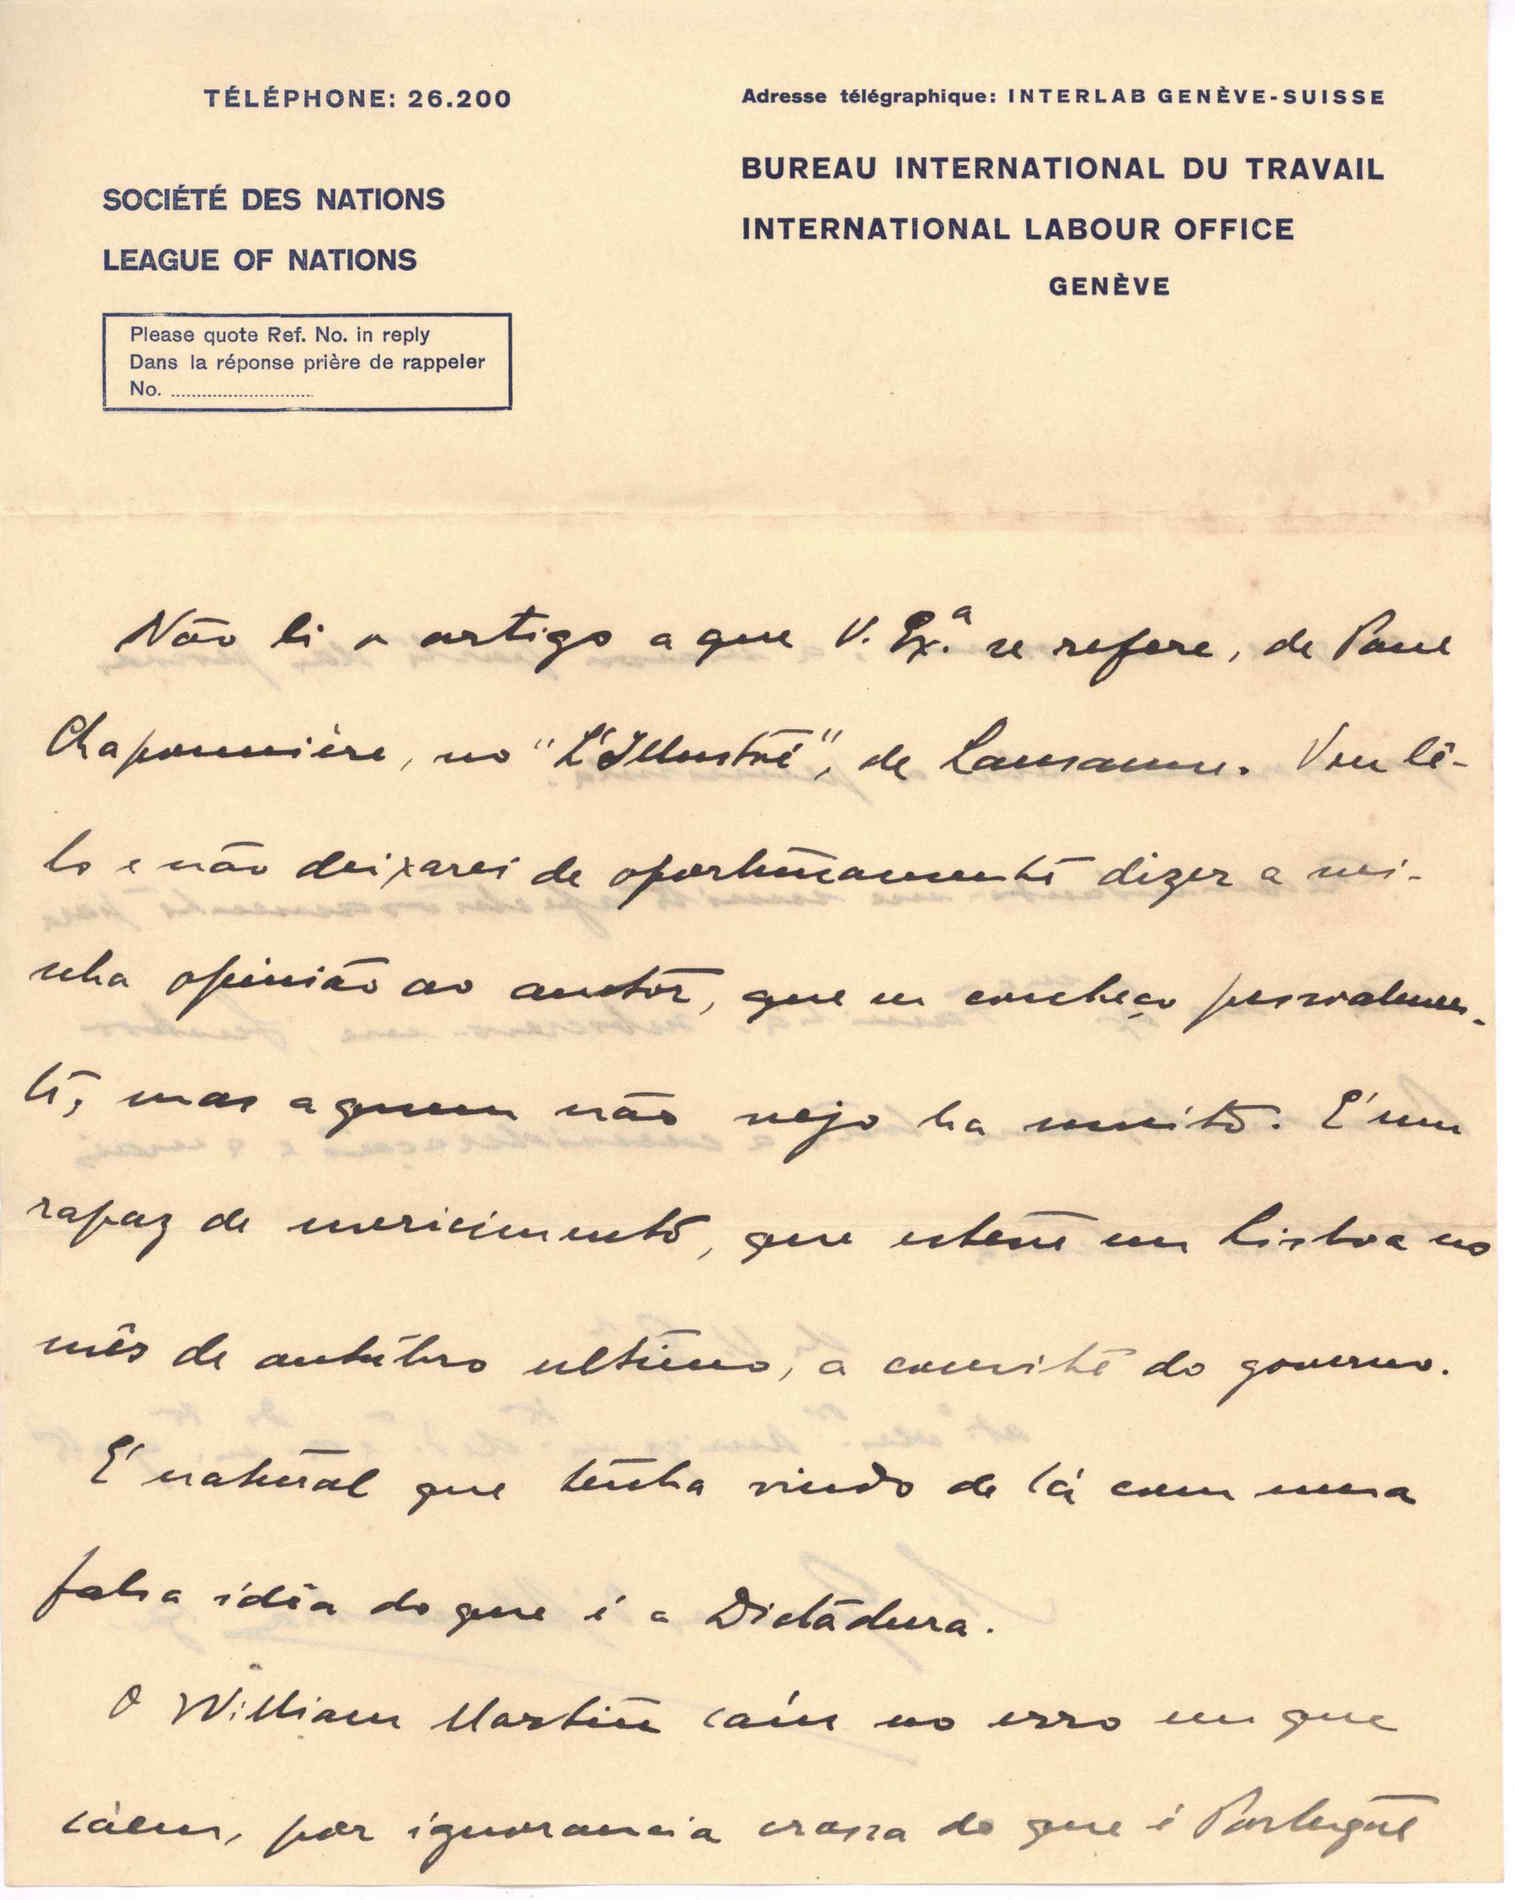 TÉLÉPHONE: 26.200
Adresse télégraphique: INTERLAB GENÈVE-SUISSE
SOCIÉTÉ DES NATIONS
LEAGUE OF NATIONS
BUREAU INTERNATIONAL DU TRAVAIL
INTERNATIONAL LABOUR OFFICE
GENÈVE
Please quote Ref. No. in reply
Dans la réponse prière de rappeler
No.
Não li o artigo a que V. Ex.ª se refere, de Paul
Chaponnière, no "L'Illustré", de Lausanne. Vou lê-
lo e não deixarei de oportunamente dizer a mi-
nha opinião ao auctor, que eu conheço pessoalmen-
te, mas a quem não vejo ha muito. É um
rapaz de merecimento, que esteve em Lisboa no
mês de outubro ultimo, a convite do governo.
É natural que tenha vindo de lá com uma
falsa idêa do que é a Dictadura.
O William Martin caíu no erro em que
cáem, por ignorancia crassa do que é Portugal